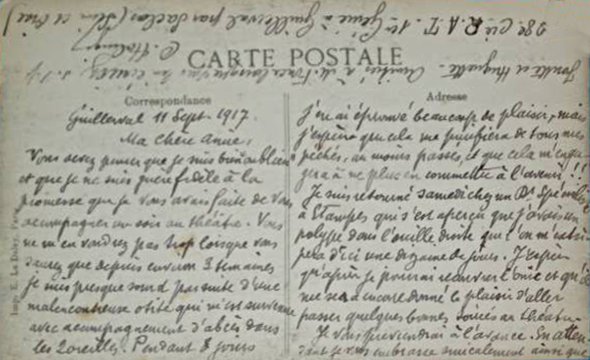 28e Cie R.A.T. 1er Génie à Guillerval par Saclas (Seine et Oise)
CARTE POSTALE
Correspondance
Guillerval 11 Sept. 1917.
Ma chère Annie,
Vous devez penser que je suis bien oublieux
et que je ne suis guère fidèle à la
promesse que je vous avais faite de vous
accompagner un soir au théâtre. Vous
ne m'en voudrez pas trop lorsque vous
saurez que depuis environ 3 semaines
je suis presque sourd par suite d'une
malencontreuse otite qui m'est survenue
avec accompagnement d'abcès dans
les 2 oreilles. Pendant 8 jours
Adresse
j'en ai éprouvé beaucoup de plaisir, mais
j'espère que cela me purifiera de tous mes
péchés, au moins passés, et que cela m'enga-
gera à ne plus en commettre à l'avenir !!
Je suis retourné samedi chez un Dr Spécialiste
à Etampes qui s'est aperçu que j'avais un
polype dans l'oreille droite que l'on m'extir-
pera d'ici une dizaine de jours. J'espère
qu'après je pourrai recouvrer l'ouïe et qu'il
me sera encore donné le plaisir d'aller
passer quelques bonnes soirées au théâtre.
Je vous préviendrai à l'avance. En atten-
dant je vous embrasse amicalement ainsi que
Imp. E. Le Deley, Paris